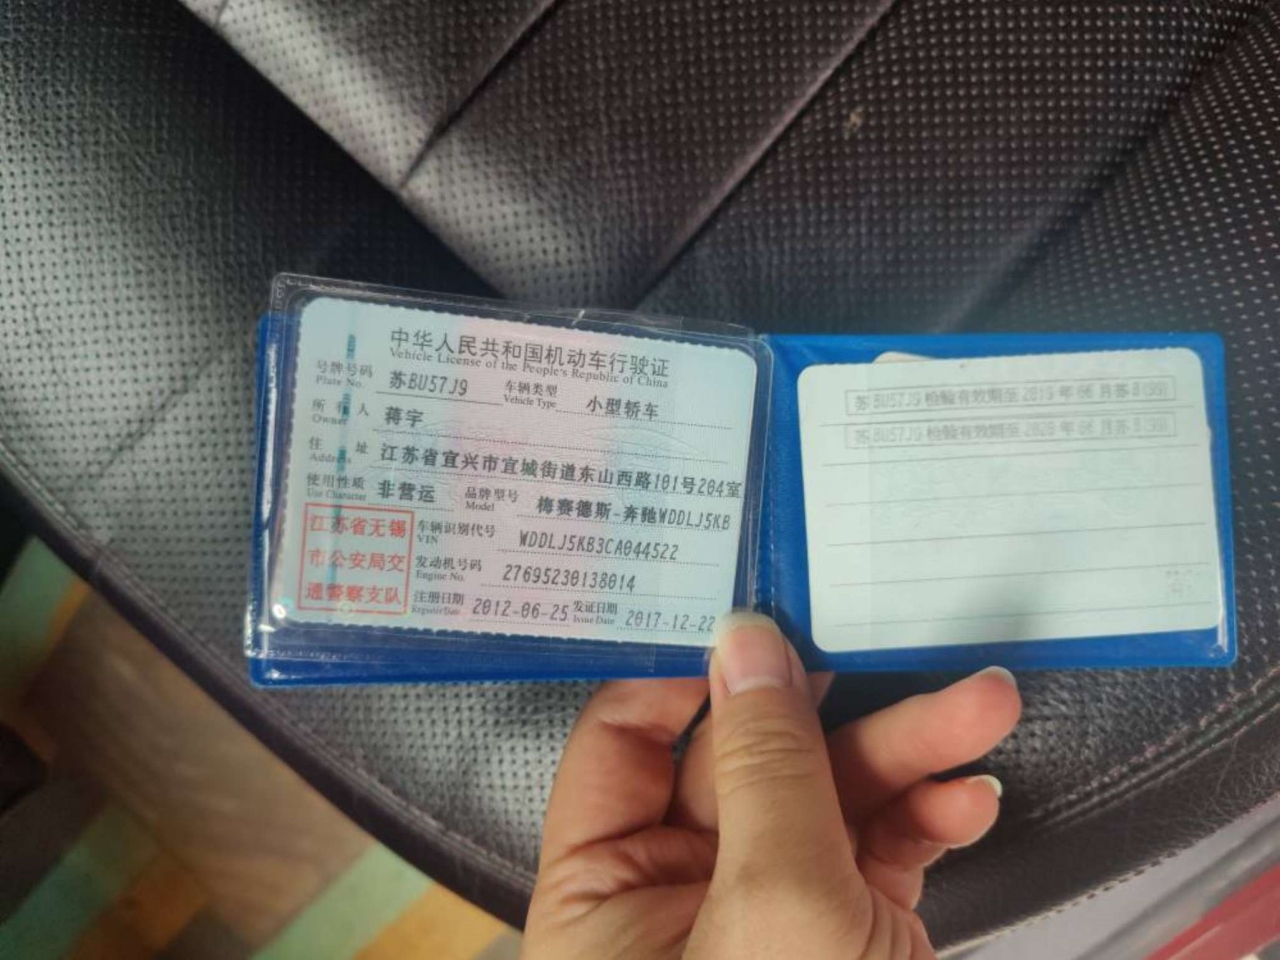 中华人民共和国机动车行驶证
Vehicle License of the People's Republic of China
号牌号码 苏BU57J9 车辆类型 小型轿车
Plate No. Vehicle Type
所有人 蒋宇
Owner
住址 江苏省宜兴市宜城街道东山西路101号204室
Address
使用性质 非营运 品牌型号 梅赛德斯-奔驰WDDLJ5KB
Use Character Model
江苏省无锡
市公安局交
通警察支队
车辆识别代号 WDDLJ5KB3CA044522
VIN
发动机号码 27695230138014
Engine No.
注册日期 2012-06-25 发证日期 2017-12-22
Register Date Issue Date
苏BU57J9 检验有效期至 年06月苏B(99)
苏BU57J9 检验有效期至2020年06月苏B(99)